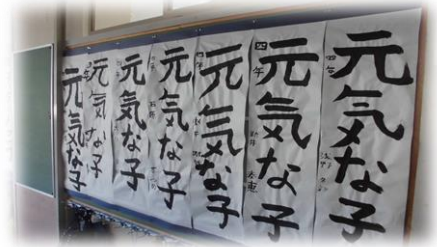 元気な子
四年
元気な子
四年
元気な子
元気な子
元気な子
元気な子
元気な子